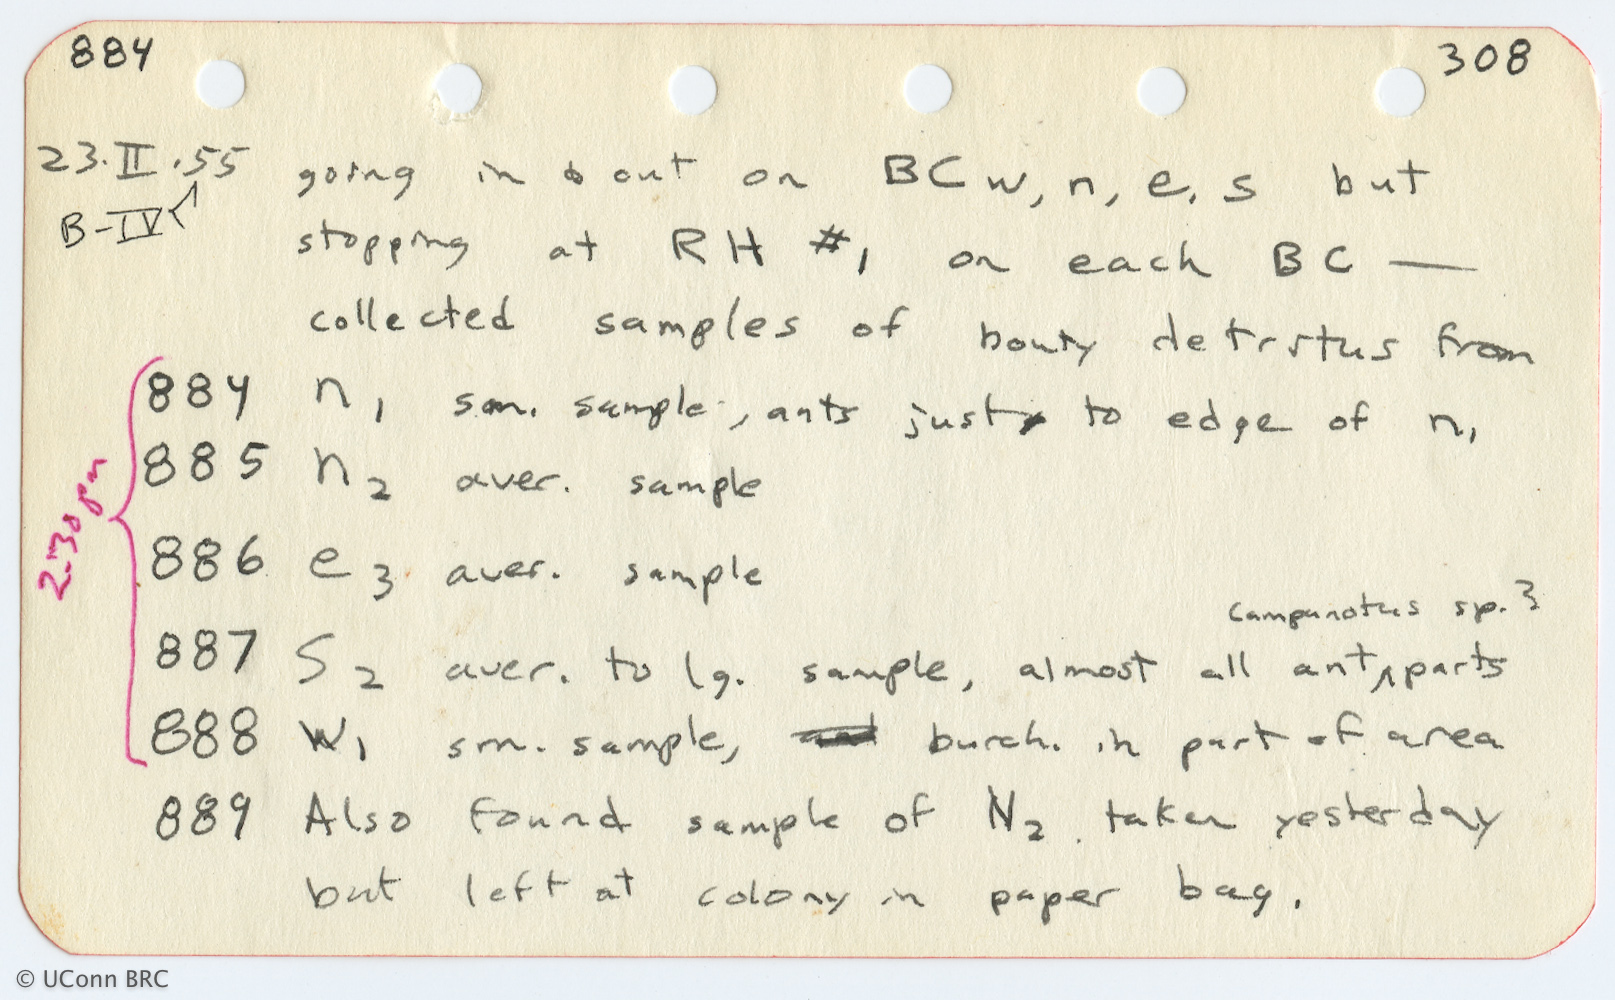 884 308
23.II.55 going in & out on BC w, n, e, s but
B-IV stopping at RH #1 on each BC —
collected samples of booty detritus from
884 n1 sm. sample, ants just to edge of n1
885 n2 aver. sample
2:30 pm
886 e3 aver. sample
Camponotus sp. 3
887 S2 aver. to lg. sample, almost all ant ʌ parts
888 W1 sm. sample, burch. in part of area
889 Also found sample of N2 taken yesterday
but left at colony in paper bag.
© UConn BRC